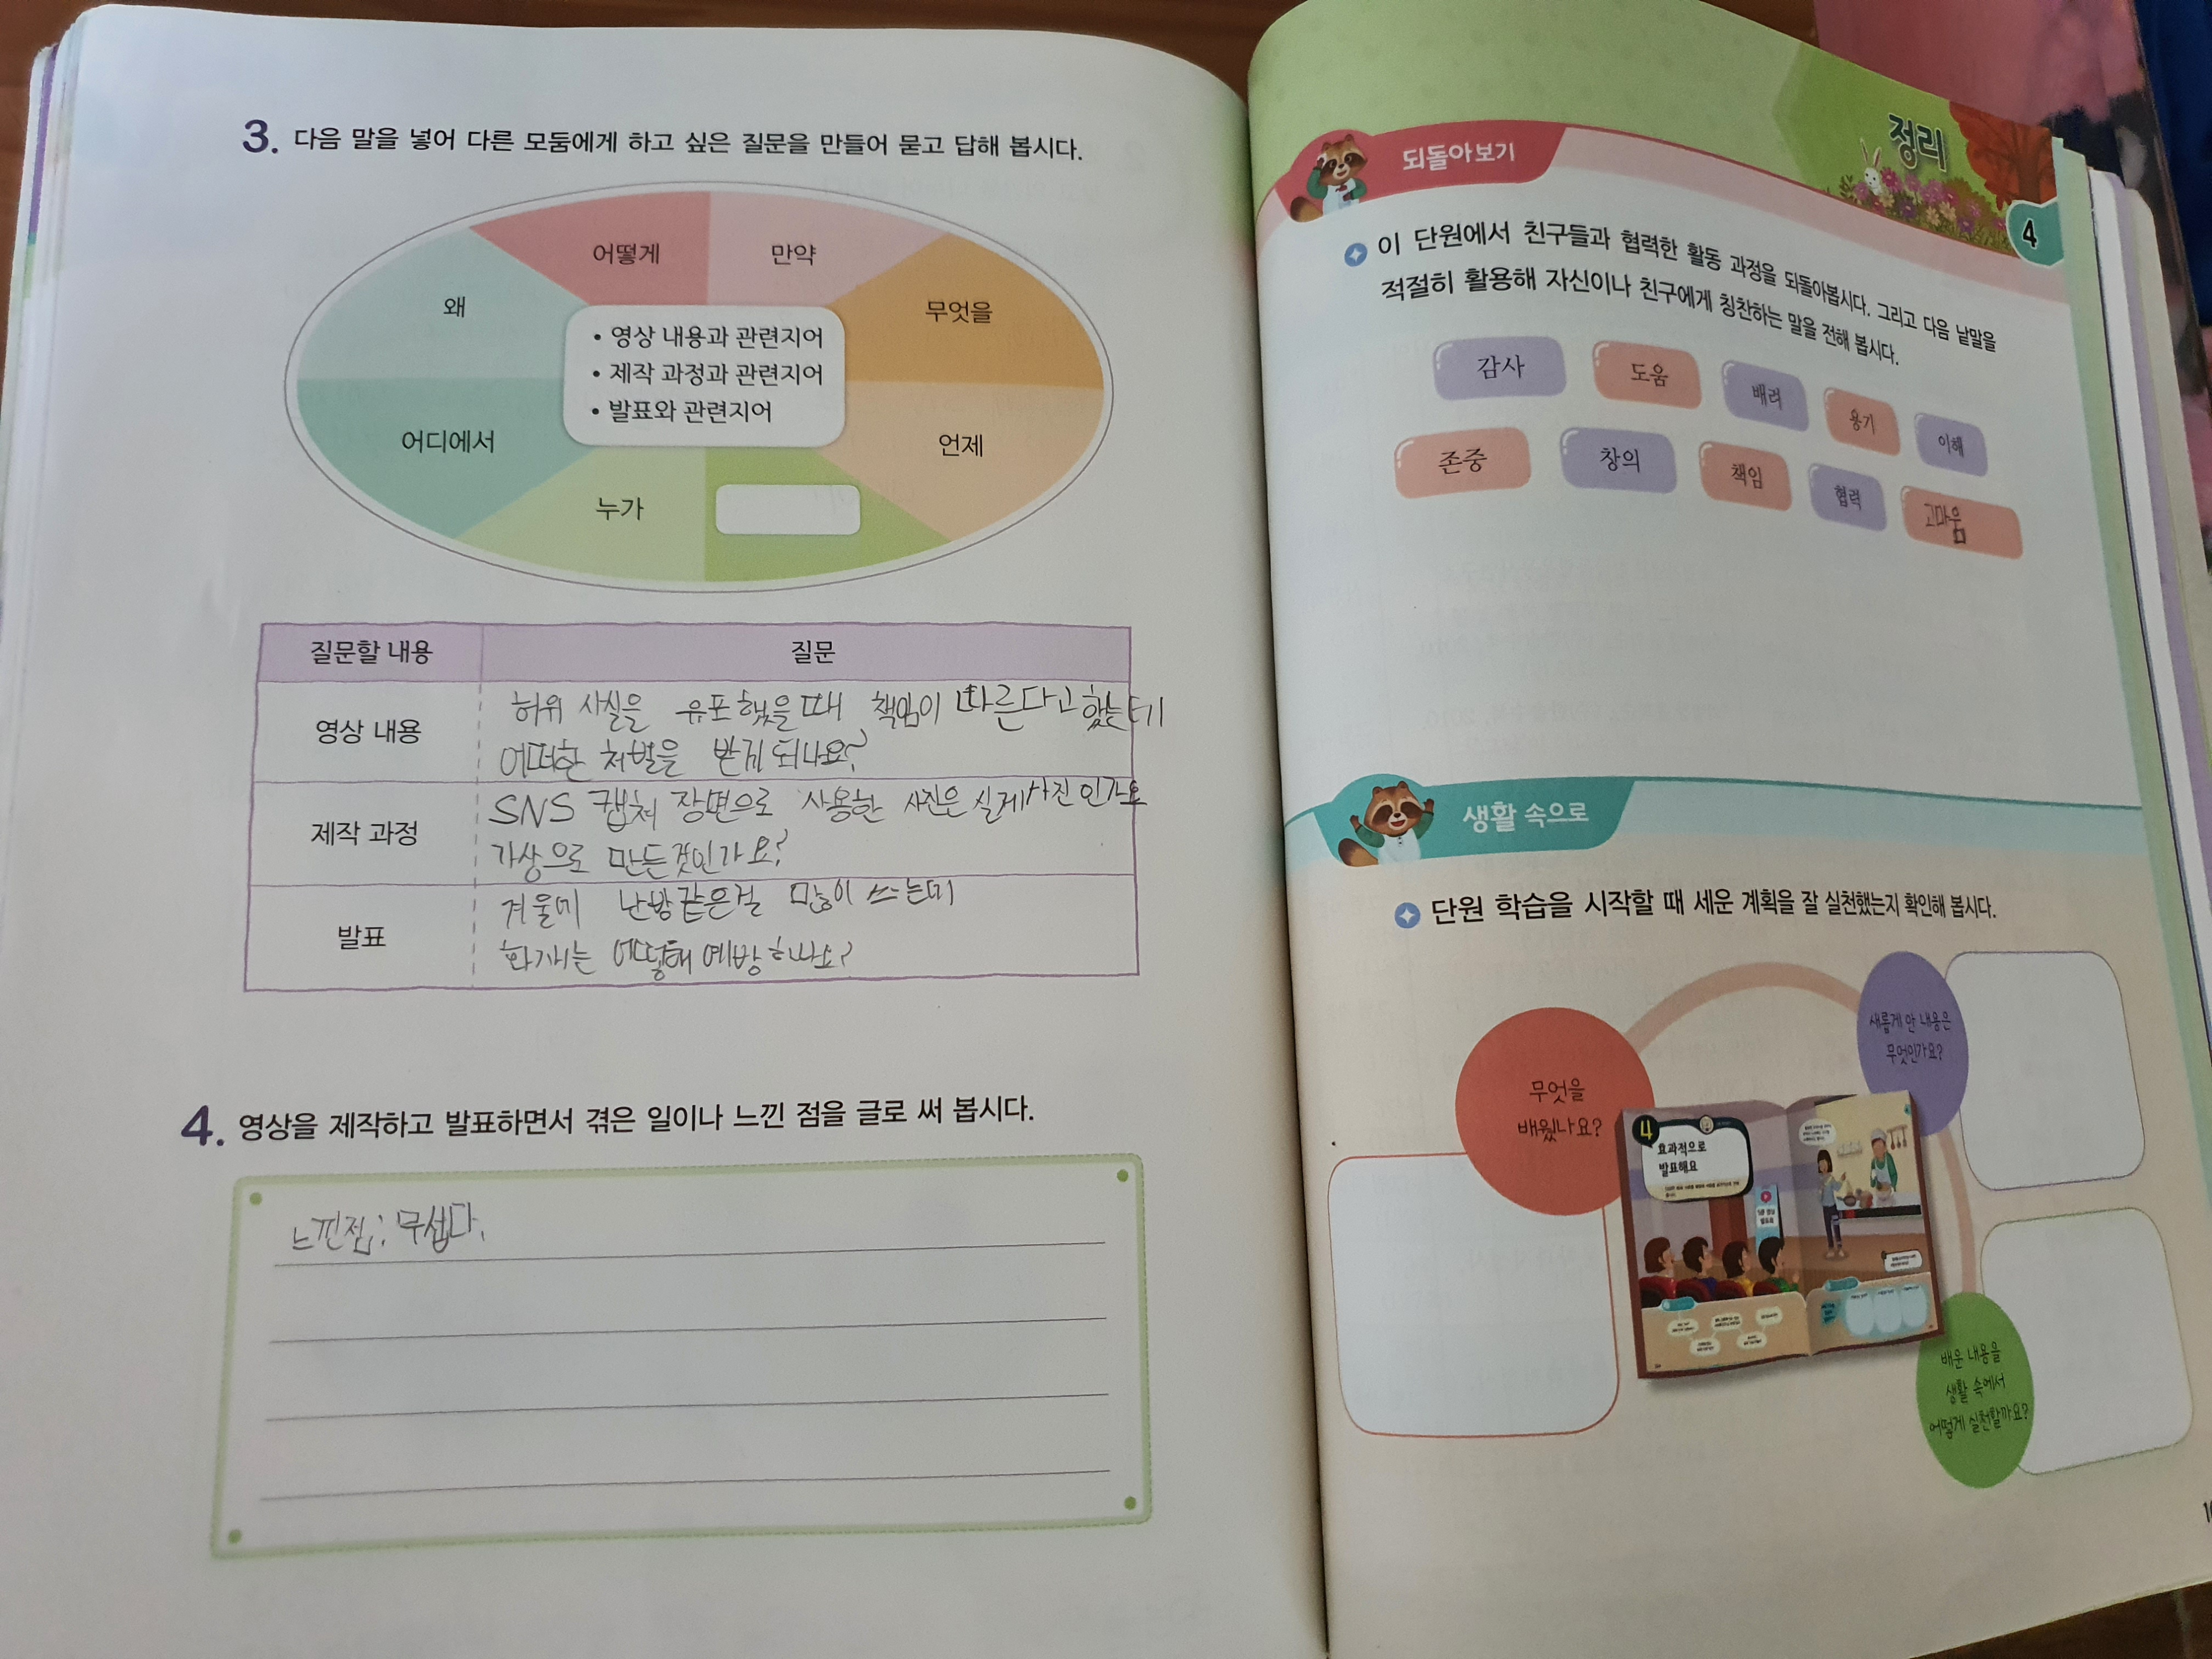 3. 다음 말을 넣어 다른 모둠에게 하고 싶은 질문을 만들어 묻고 답해 봅시다.
어떻게
만약
왜
무엇을
• 영상 내용과 관련지어
• 제작 과정과 관련지어
• 발표와 관련지어
어디에서
언제
누가
질문할 내용 질문
영상 내용
허위 사실을 유포했을때 책임이 따른다고 했는데
어떠한 처벌을 받게 되나요?
제작 과정
SNS 캡쳐 장면으로 사용한 사진은 실제사진인가요
가상으로 만든것인가요?
발표
겨울에 난방같은걸 많이 쓰는데
화재는 어떻해 예방하나요?
4. 영상을 제작하고 발표하면서 겪은 일이나 느낀 점을 글로 써 봅시다.
느낀점: 무섭다.
정리
4
되돌아보기
이 단원에서 친구들과 협력한 활동 과정을 되돌아봅시다. 그리고 다음 낱말을
적절히 활용해 자신이나 친구에게 칭찬하는 말을 전해 봅시다.
감사
도움
배려
용기
이해
존중
창의
책임
협력
고마움
생활 속으로
단원 학습을 시작할 때 세운 계획을 잘 실천했는지 확인해 봅시다.
무엇을
배웠나요?
새롭게 안 내용은
무엇인가요?
4
효과적으로
발표해요
배운 내용을
생활 속에서
어떻게 실천할까요?